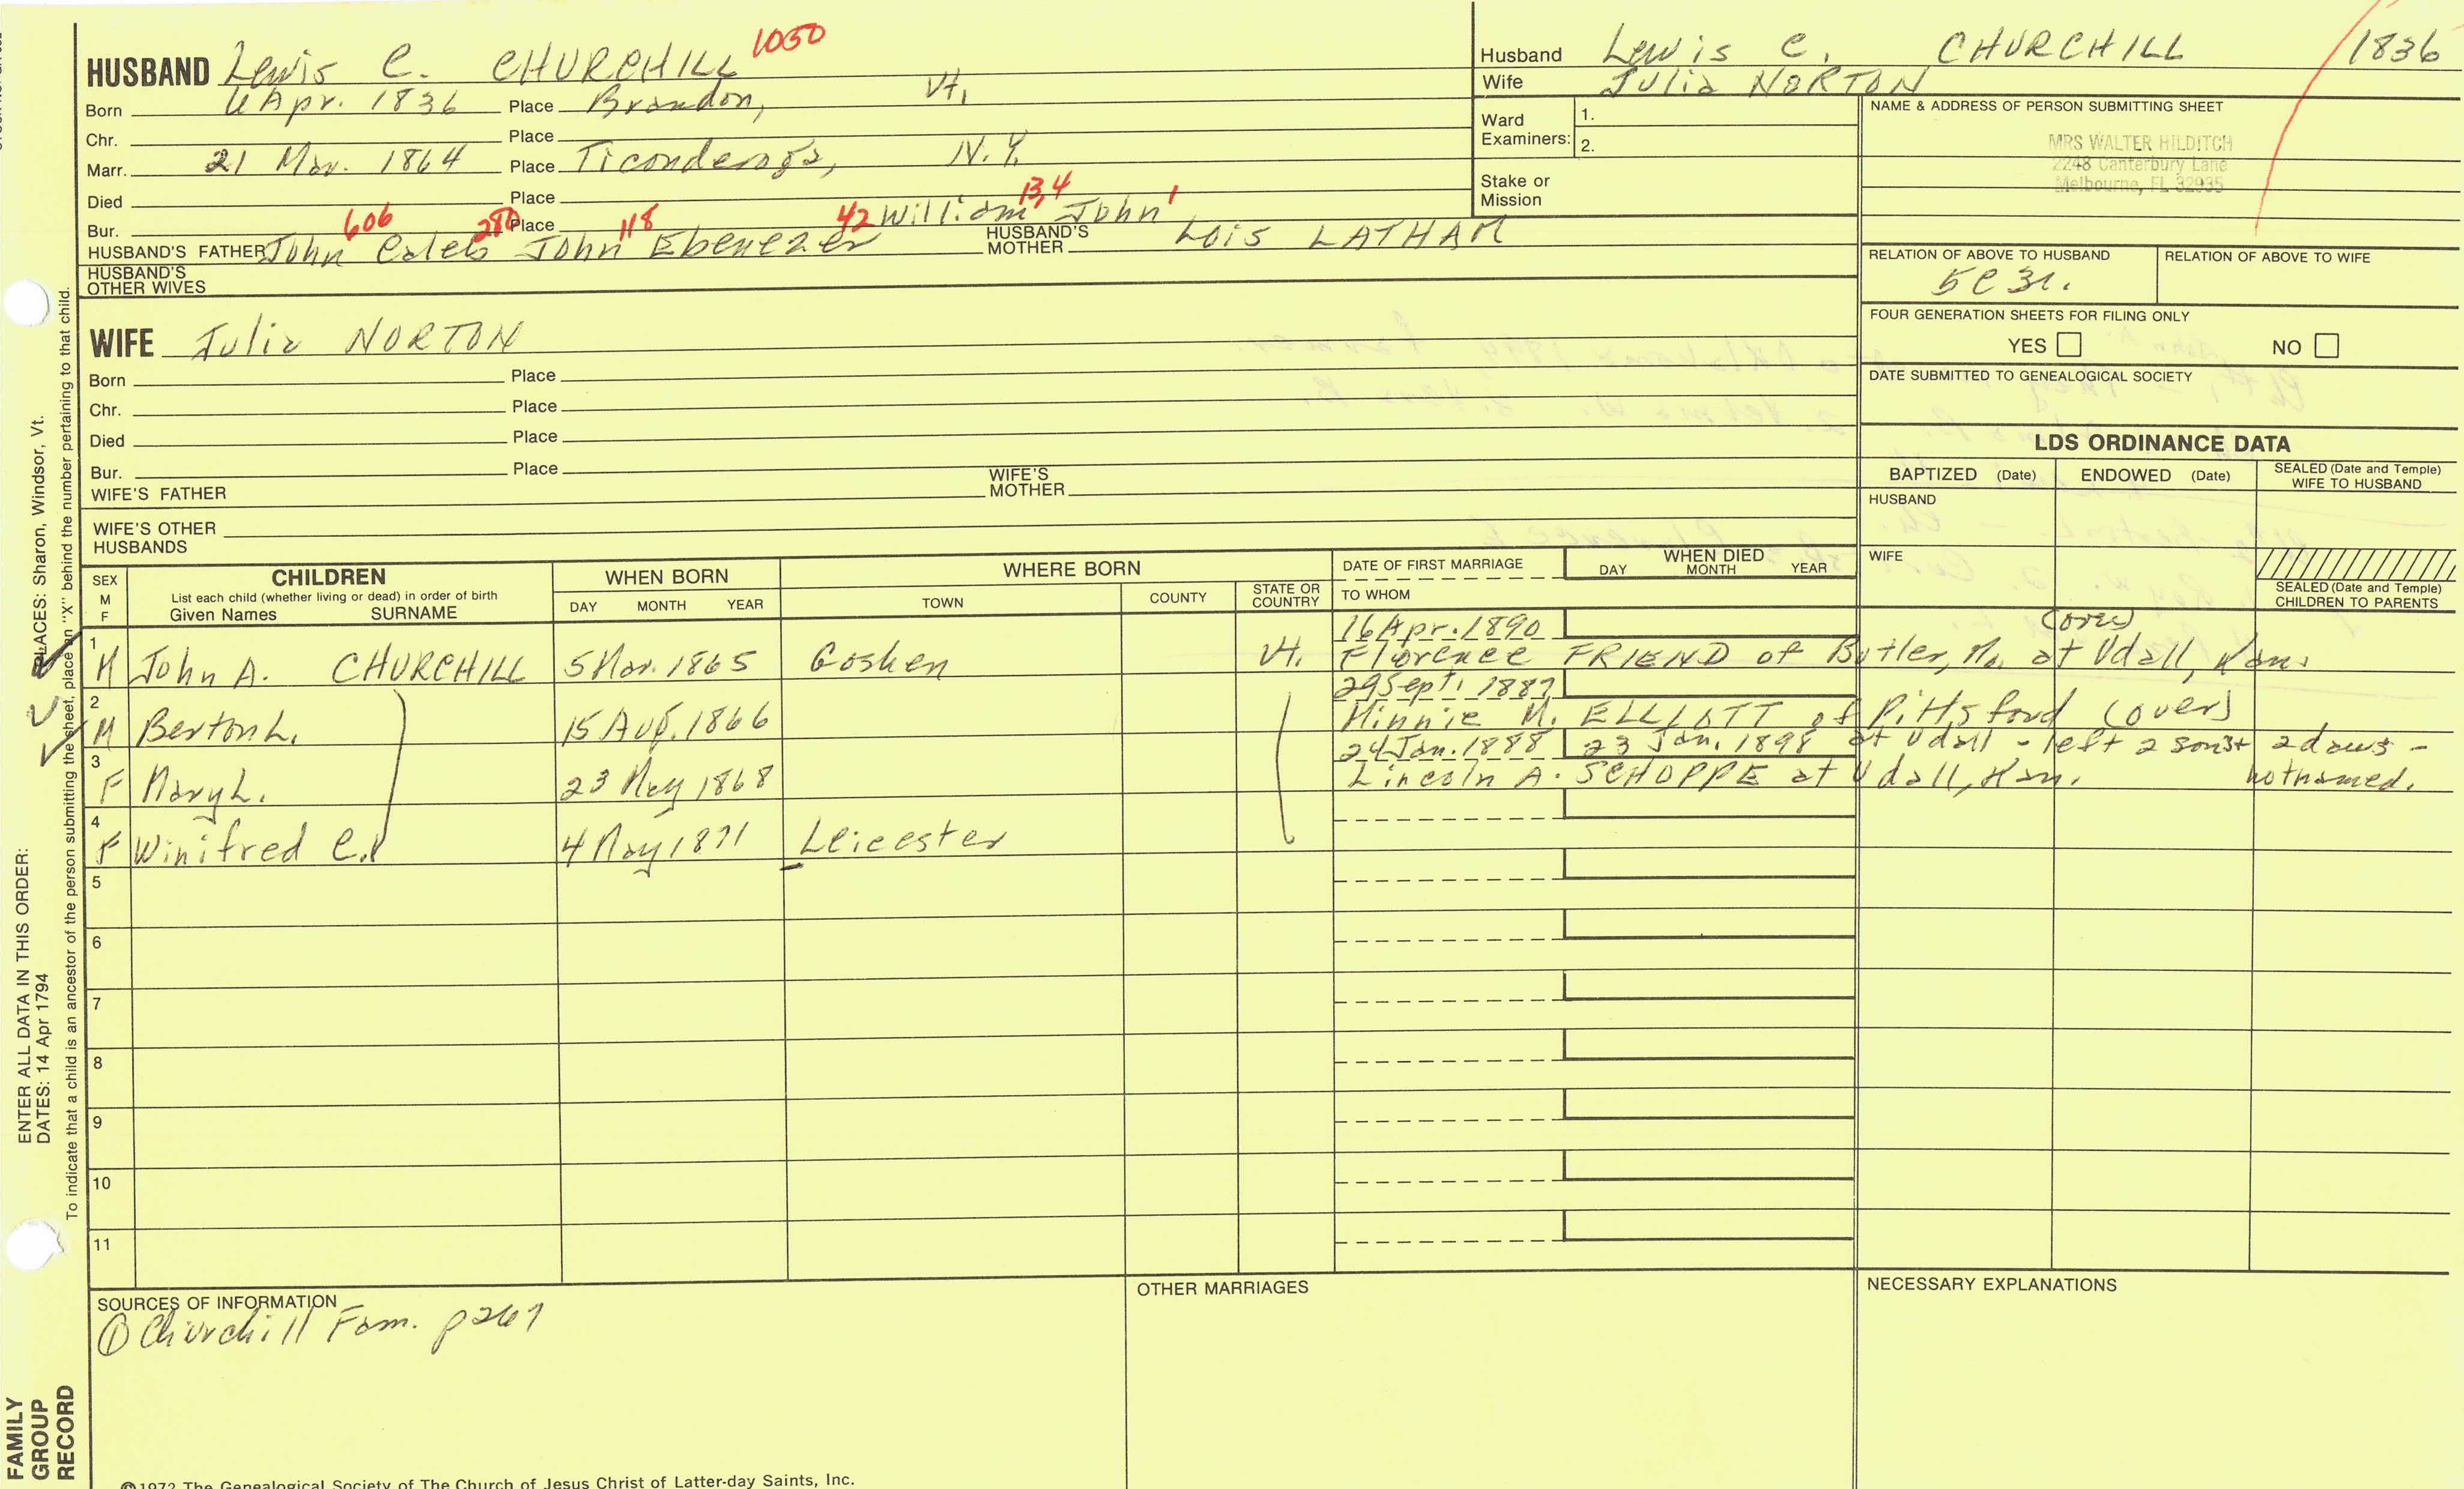 HUSBAND Lewis C. CHURCHILL 1050
Born 6 Apr. 1836 Place Brandon, Vt.
Chr. Place
Marr. 21 Mar. 1864 Place Ticonderoga, N.Y.
Died Place
Bur. Place
606 280 118 42 William 13,4 John 1
HUSBAND'S FATHER John Caleb John Ebenezer HUSBAND'S MOTHER Lois LATHAM
HUSBAND'S OTHER WIVES
WIFE Julia NORTON
Born Place
Chr. Place
Died Place
Bur. Place
WIFE'S FATHER WIFE'S MOTHER
WIFE'S OTHER HUSBANDS
Husband Lewis C. CHURCHILL 1836
Wife Julia NORTON
Ward Examiners: 1.
2.
Stake or Mission
NAME & ADDRESS OF PERSON SUBMITTING SHEET
MRS WALTER HILDITCH
2248 Canterbury Lane
Melbourne, FL 32935
RELATION OF ABOVE TO HUSBAND RELATION OF ABOVE TO WIFE
5C3r.
FOUR GENERATION SHEETS FOR FILING ONLY
YES NO
DATE SUBMITTED TO GENEALOGICAL SOCIETY
LDS ORDINANCE DATA
BAPTIZED (Date) ENDOWED (Date) SEALED (Date and Temple) WIFE TO HUSBAND
HUSBAND
WIFE
SEALED (Date and Temple) CHILDREN TO PARENTS
SEX M F CHILDREN WHEN BORN WHERE BORN DATE OF FIRST MARRIAGE WHEN DIED
List each child (whether living or dead) in order of birth
Given Names SURNAME DAY MONTH YEAR TOWN COUNTY STATE OR COUNTRY TO WHOM DAY MONTH YEAR
1 16 Apr. 1890 (over)
M John A. CHURCHILL 5 Mar. 1865 Goshen Vt. Florence FRIEND of Butler, Mo. at Udall, Kan.
2 29 Sept. 1887
M Berton L. 15 Aug. 1866 Minnie M. ELLIOTT of Pittsford (over)
3 24 Jan. 1888 23 Jan. 1898 at Udall - left 2 sons+ 2 daus -
F Mary L. 23 May 1868 Lincoln A. SCHOPPE at Udall, Kan. not named.
4
F Winifred C. 4 May 1871 Leicester
5
6
7
8
9
10
11
SOURCES OF INFORMATION OTHER MARRIAGES NECESSARY EXPLANATIONS
① Churchill Fam. p267
©1972 The Genealogical Society of The Church of Jesus Christ of Latter-day Saints, Inc.
FAMILY GROUP RECORD
ENTER ALL DATA IN THIS ORDER:
DATES: 14 Apr 1794 PLACES: Sharon, Windsor, Vt.
To indicate that a child is an ancestor of the person submitting the sheet, place an "X" behind the number pertaining to that child.